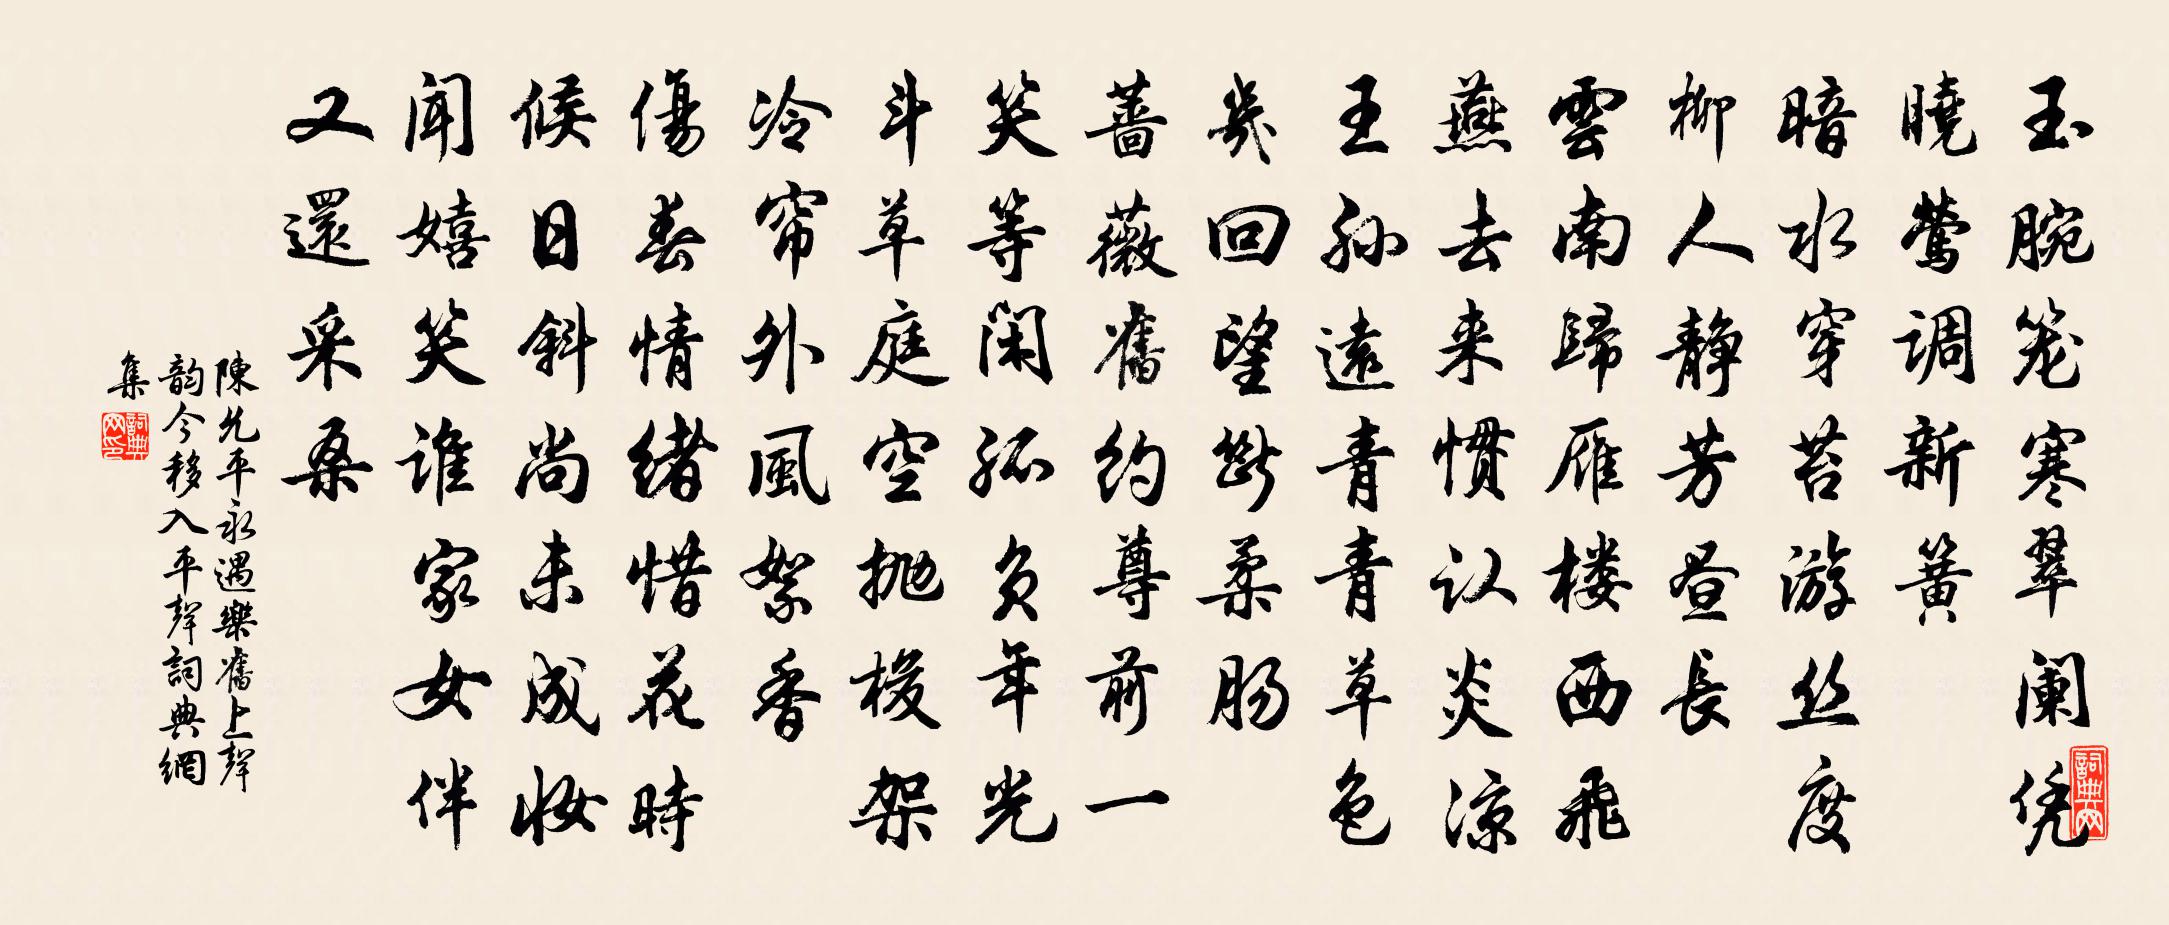 玉腕笼寒翠阑凭
晓莺调新簧
暗水穿苔游丝度
柳人静芳昼长
云南归雁楼西飞
燕去来惯认炎凉
王孙远青青草色
几回望断柔肠
蔷薇旧约尊前一
笑等闲孤负年光
斗草庭空抛梭架
冷帘外风絮香
伤春情绪惜花时
候日斜尚未成妆
闻嬉笑谁家女伴
又还采桑
陈允平永遇乐旧上声
韵今移入平声词典网
集
詞典网
詞典网印